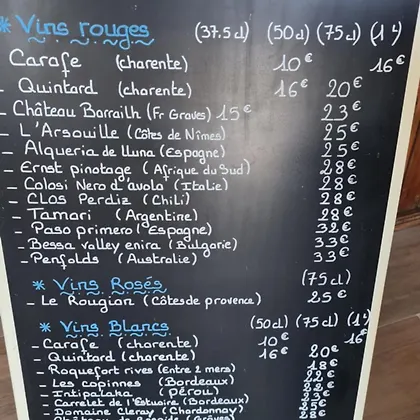 * Vins rouges (37.5cl) (50cl) (75cl) (1L)
Carafe (charente) 10€ 16€
- Quintard (charente) 16€ 20€
- Château Barrailh (Fr Graves) 15€ 23€
- L'Arsouille (Côtes de Nîmes) 25€
- Alqueria de lluna (Espagne) 25€
- Ernst pinotage (Afrique du Sud) 28€
- Colosi Nero d'avola (Italie) 28€
- Clos Perdiz (Chili) 28€
- Tamari (Argentine) 28€
- Paso primero (Espagne) 32€
- Bessa valley enira (Bulgarie) 33€
- Penfolds (Australie) 33€
* Vins Rosés (75cl)
- Le Rougian (Côtes de provence) 25€
* Vins Blancs (50cl) (75cl) (1L)
- Carafe (charente) 10€ 16€
- Quintard (charente) 16€ 20€
- Roquefort rives (Entre 2 mers) 18€
- Les copinnes (Bordeaux) 22€
- Intipalka (Pérou)
- Carrelet de l'Estuaire (Bordeaux) 23€
- Domaine Cleray (Chardonnay) 25€